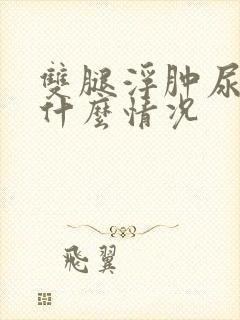 雙腿浮肿尿
什麼情况
飛翼